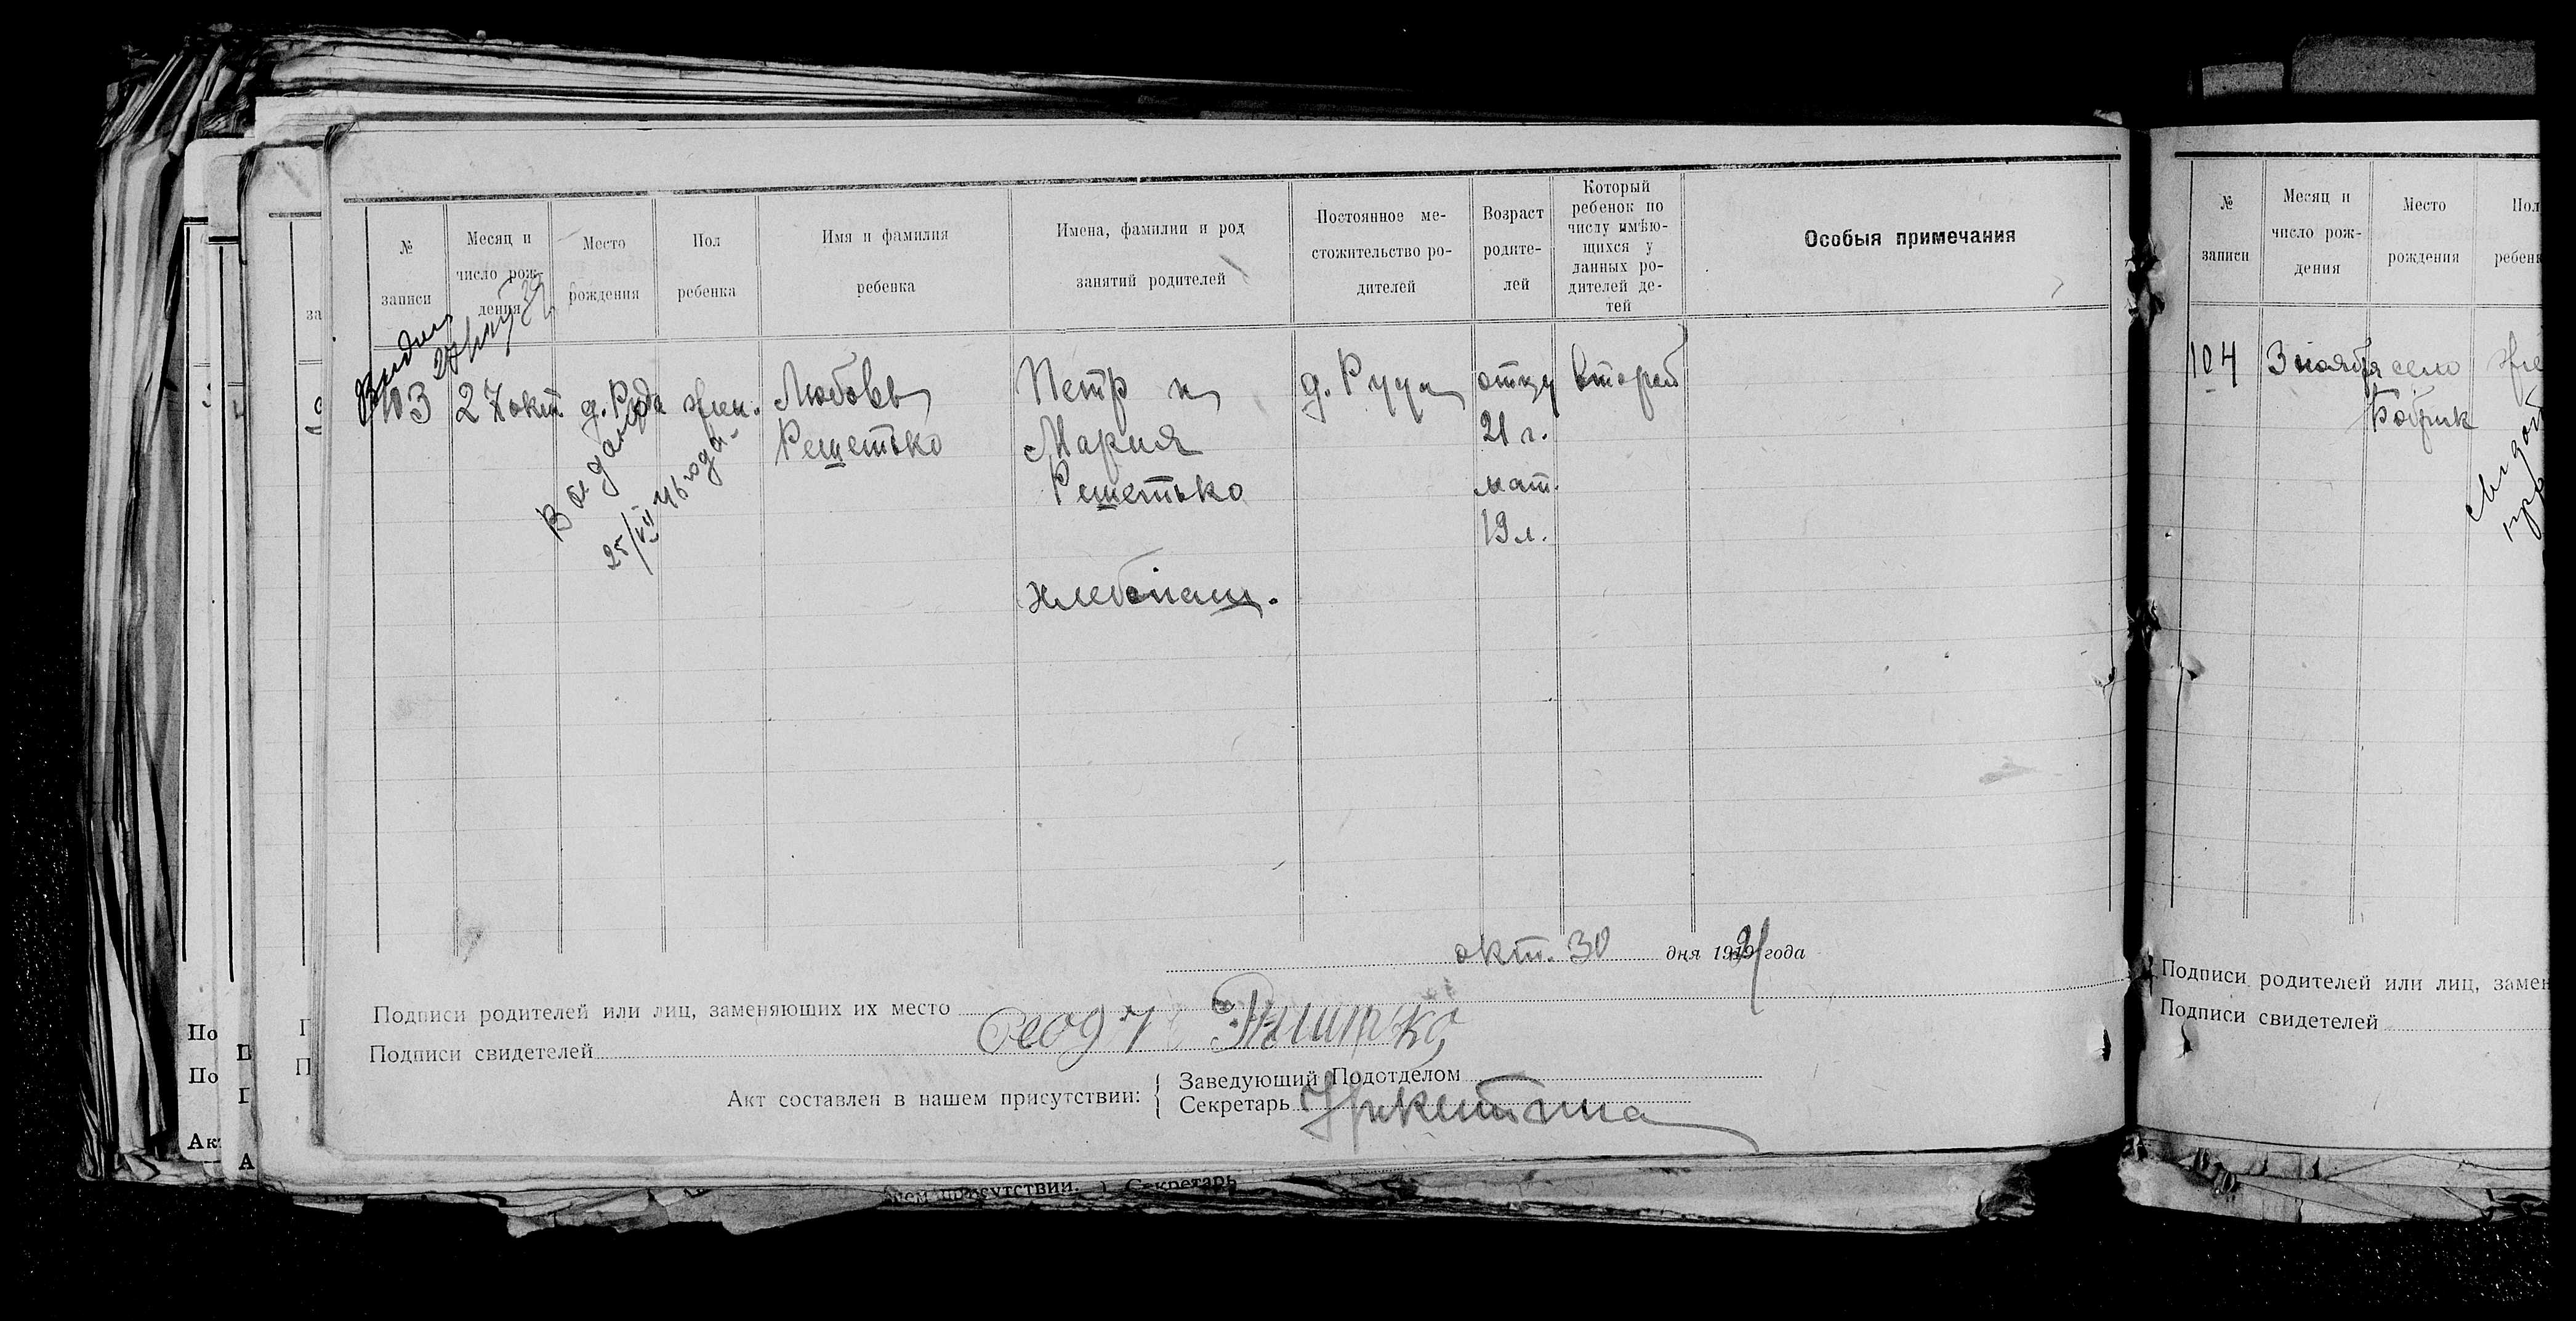 №
записи
Месяц и
число рож-
дения
Место
рождения
Пол
ребенка
Имя и фамилия
ребенка
Имена, фамилии и род
занятий родителей
Постоянное ме-
стожительство ро-
дителей
Возраст
родите-
лей
Который
ребенок по
числу имѣю-
щихся у
данных ро-
дителей де-
тей
Особыя примечания
103
27 окт
д. Руда
жен.
Любовь
Решетько
Петр и
Мария
Решетько
хлебопаш.
д. Руда
отцу
21 г.
мат.
19 л.
второй
Выдано
25/VII 46 года.
окт. 30 дня 1921 года
Подписи родителей или лиц, заменяющих их место
Подписи свидетелей
Акт составлен в нашем присутствии:
Заведующий Подотделом
Секретарь
№
записи
Месяц и
число рож-
дения
Место
рождения
Пол
ребен
104
3 ноября
село
Бобрик
же
Подписи родителей или лиц, замен
Подписи свидетелей
за
По
По
Ак
П
Г
А
Г
П
нем присутствии. Секретарь